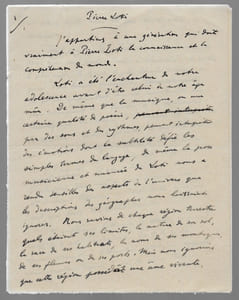 1
Pierre Loti
J'appartiens à une génération qui doit
vraiment à Pierre Loti la connaissance et la
compréhension du monde.
Loti a été l'enchanteur de notre
adolescence avant d'être celui de notre âge
mûr. De même que la musique, ou une
certaine qualité de poésie,
par des sons et des rythmes peut interpréter
des émotions dont la subtilité défie les
simples termes du langage, de même la prose
musicienne et nuancée de Loti nous a
rendu sensibles des aspects de l'univers que
les descriptions des géographes nous laissaient
ignorer. Nous savions de chaque région terrestre
quelles étaient ses limites, la nature de son sol,
la race de ses habitants, les noms de ses montagnes,
de ses fleuves ou de ses ports. Mais nous ignorions
que cette région possédait une âme vivante,